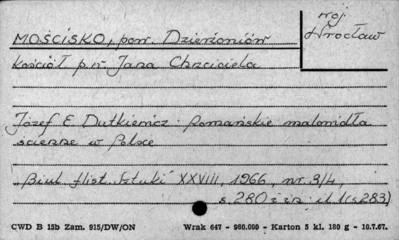 woj.
Wrocław
MOŚCISKO, pow. Dzierżoniów
Kościół p.w. Jana Chrzciciela
Józef E Dutkiewicz: Romańskie malowidła
ścienne w Polsce
"Biul. Hist. Sztuki" XXVIII, 1966, nr. 3/4
s. 280 il. 1 (s. 283)
CWD B 15b Zam. 915/DW/ON Wrak 647 - 980.000 - Karton 5 kl. 180 g - 10.7.67.